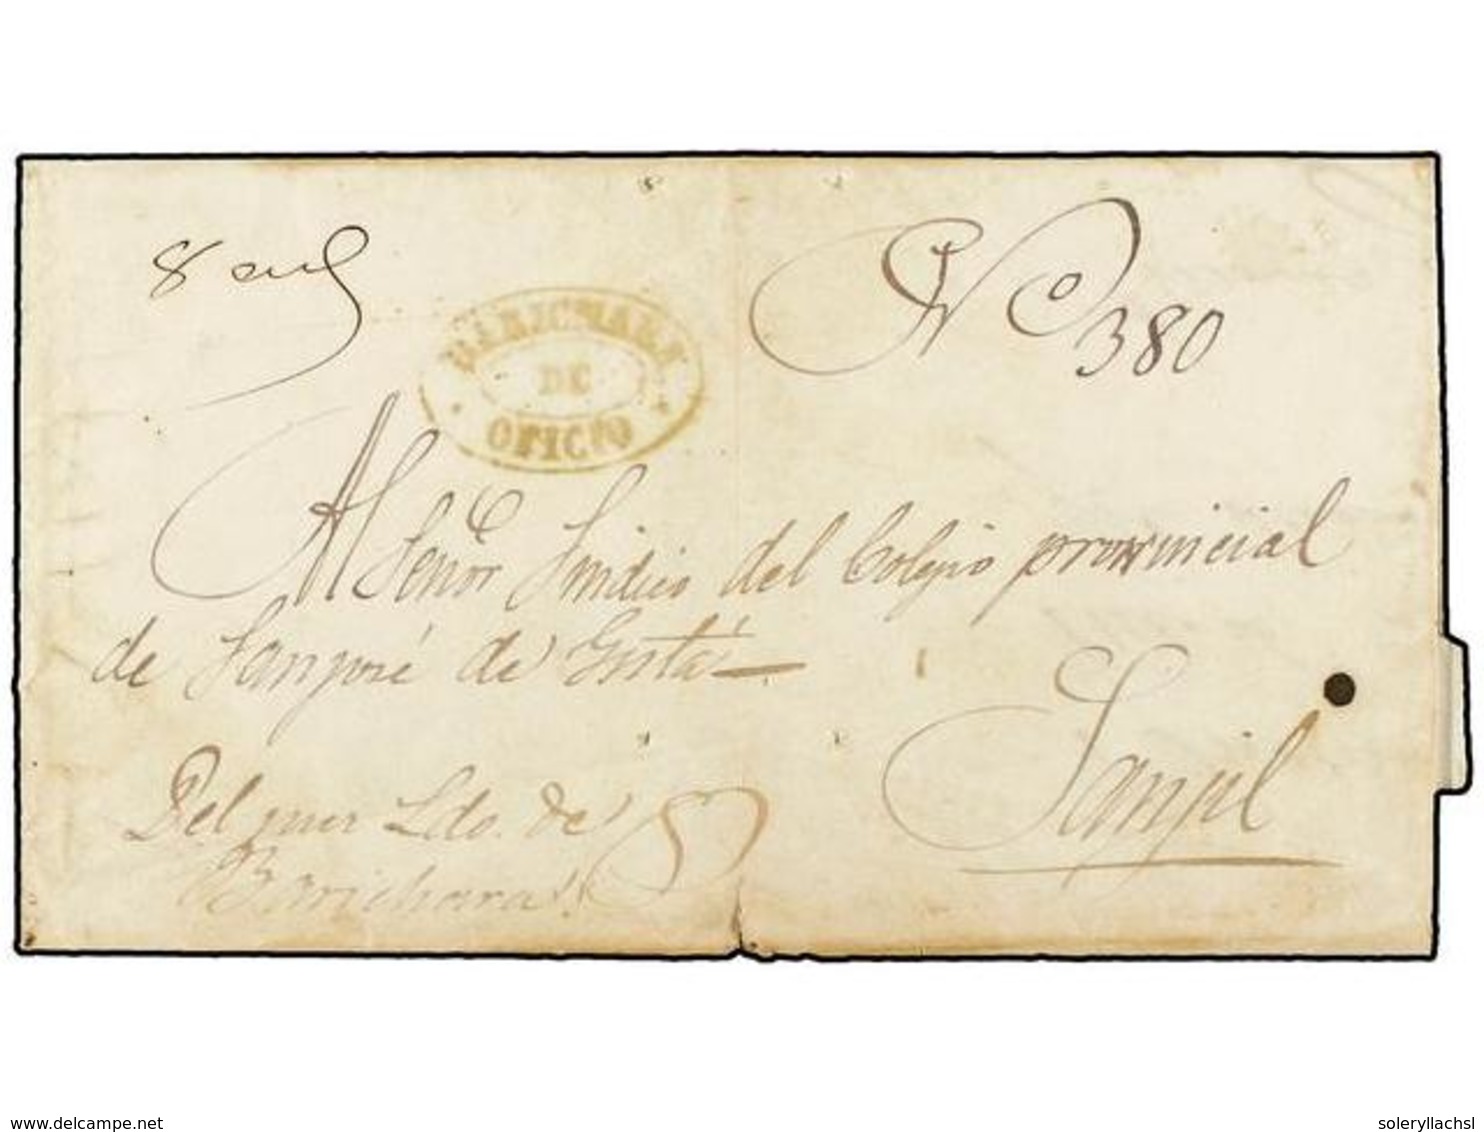 8
BARICHARA
DE
OFICIO
No 380
Al Señor Sindico del Colegio provincial
de Sanjosé de Guta
Del Ldo. de
Barichara
Sanjil
delcampe.net
soleryllachsl